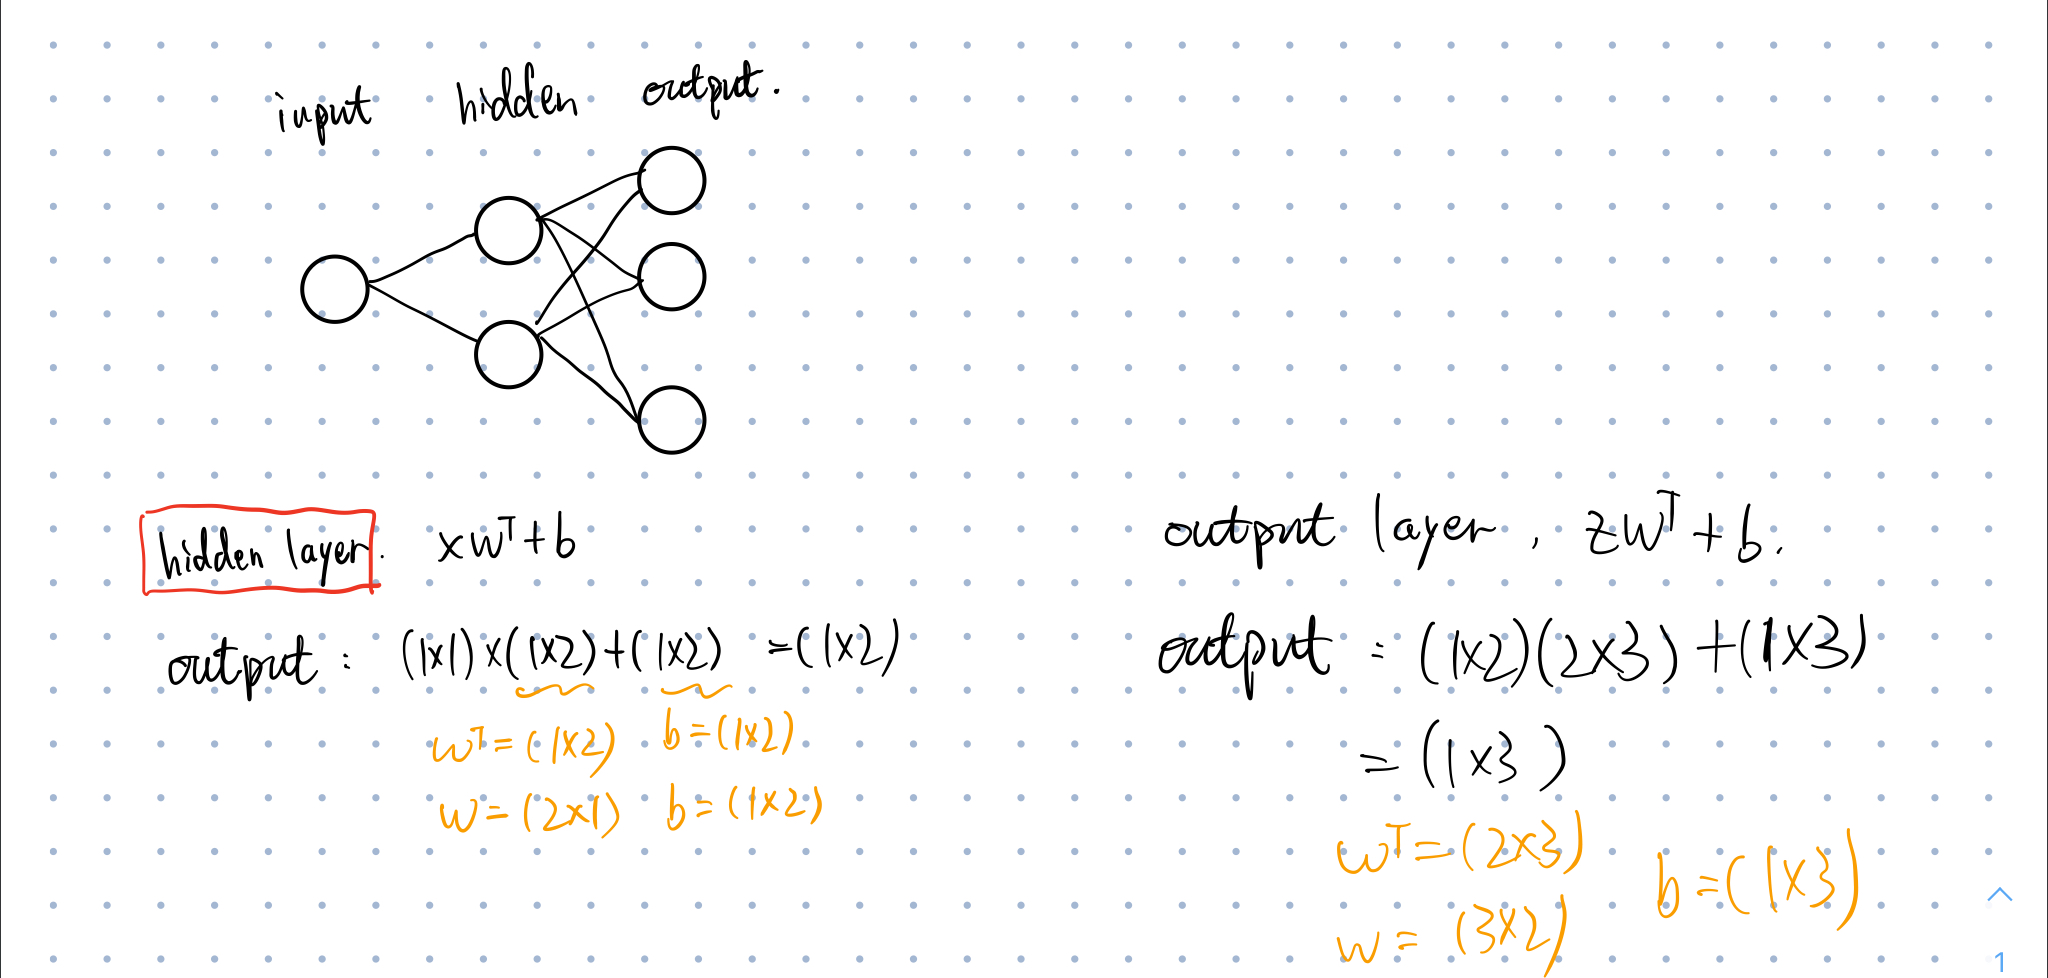 input hidden output.
hidden layer. xwᵀ+b
output : (1x1)x(1x2)+(1x2) =(1x2)
wᵀ=(1x2) b=(1x2)
w=(2x1) b=(1x2)
output layer, zwᵀ+b.
output : (1x2)(2x3)+(1x3)
=(1x3)
wᵀ=(2x3)
b=(1x3)
w=(3x2)
1